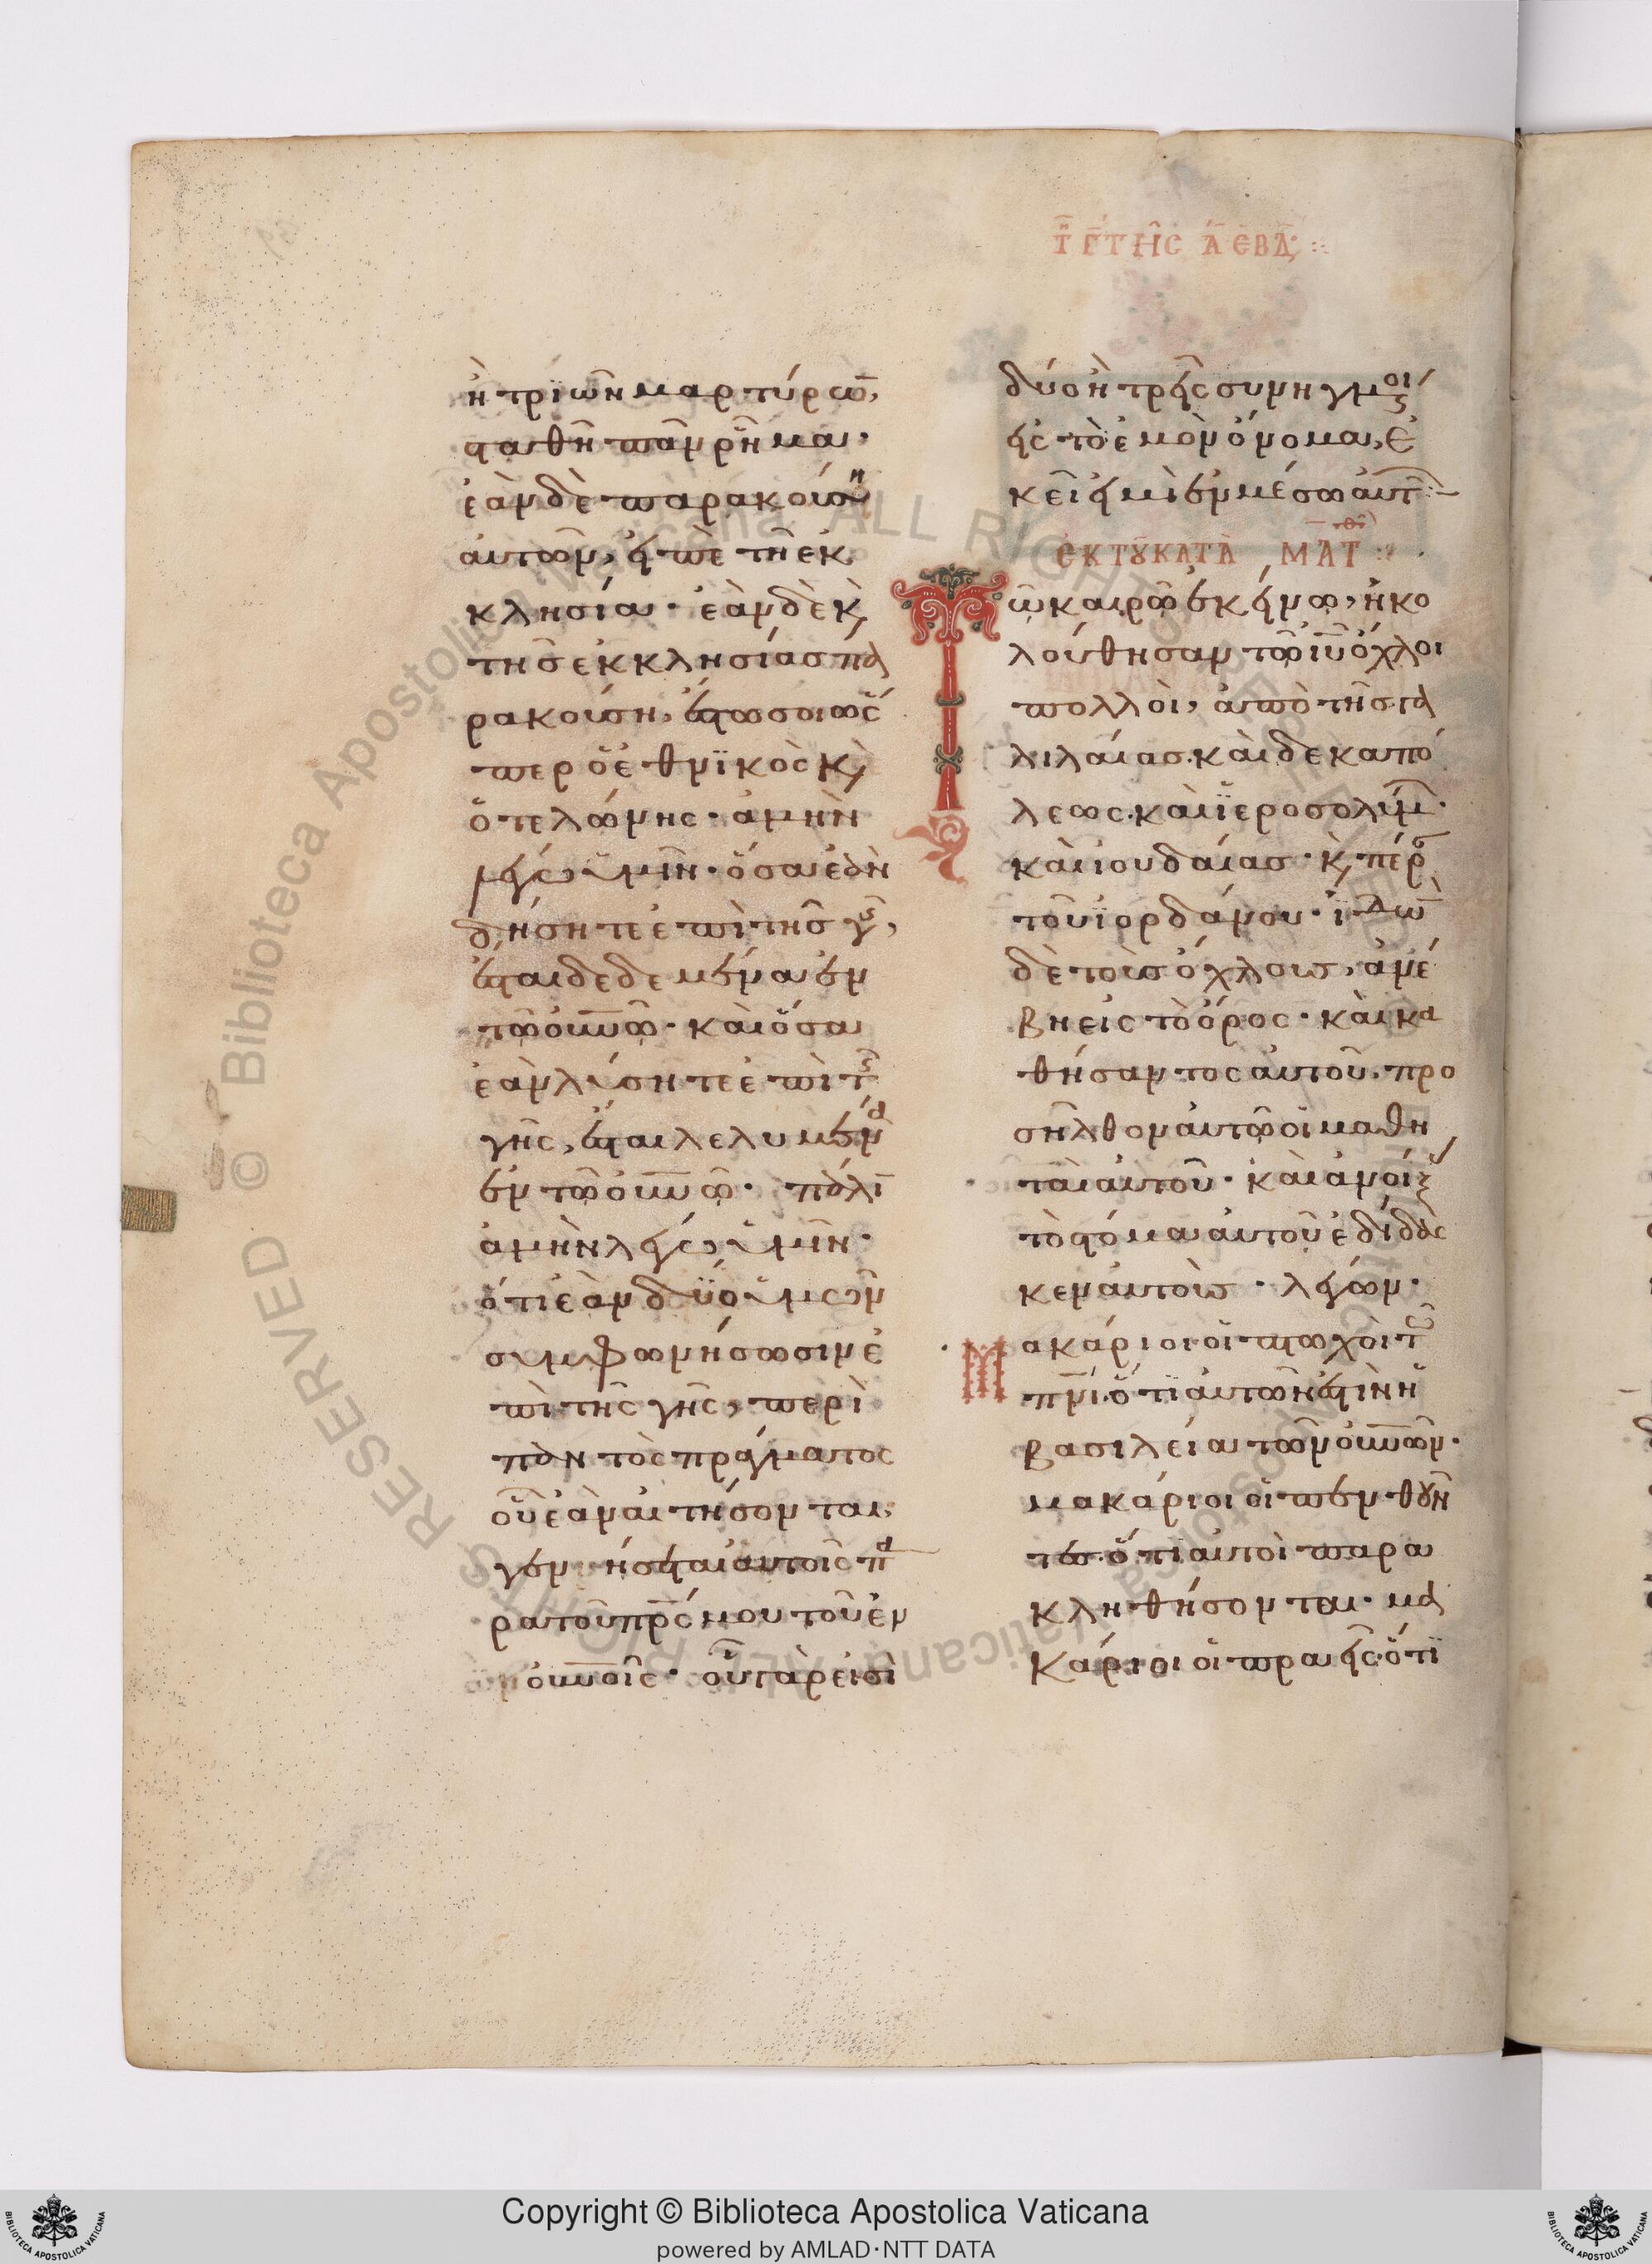 Τῆ Γ τῆς Α ἑβδ
ἢ τριῶν μαρτύρω̅,
σταθῆ πᾶν ρῆμα·
ἐὰν δὲ παρακούση
αὐτῶν, εἰπὲ τῆ ἐκ
κλησία· ἐὰν δὲ κ̀
τῆς ἐκκλησίας πα
ρακούση, ἔστω σοι ὥς
περ ὁ ἐθνϊκὸς κ̀
ὁ τελώνης· ἀμὴν
λέγω ὑμῖν· ὅσα ἐὰν
δήσητε ἐπὶ τῆς γῆς,
ἔσται δεδεμένα ἐν
τῶ οὐνῶ· καὶ ὅσα
ἐὰν λύσητε ἐπὶ τῆς
γῆς, ἔσται λελυμένα
ἐν τῶ οὐνῶ· πάλι̅
ἀμὴν λέγω ὑμῖν·
ὅτι ἐὰν δύο ὑμῶν
συμφωνήσωσιν ἐ
πὶ τῆς γῆς, περὶ
παντὸς πράγματος
οὗ ἐὰν αἰτήσονται,
γενήσεται αὐτοῖς πα
ρὰ τοῦ πρς μου τοῦ ἐν
οὐνοῖς· οὗ γάρ εἰσι
δύο ἢ τρεῖς συνηγμένοι
εἰς τὸ ἐμὸν ὄνομα, ἐ
κεῖ εἰμὶ ἐν μέσω αὐτ:
ἐκ τοῦ κατὰ Ματθ
Τῶ καιρῶ ἐκείνω, ἠκο
λούθησαν τῶ ιυ ὄχλοι
πολλοὶ, ἀπὸ τῆς γα
λιλαίας. καὶ δεκαπό
λεως. καὶ ϊεροσολύμ·
καὶ ἰουδαίας· κ̀ πέρ
τοῦ ϊορδάνου· ἰδὼ̅
δὲ τοὺς ὄχλους, ἀνέ
βη εἰς τὸ ὄρος· καὶ κα
θήσαντος αὐτοῦ, προ
σῆλθον αὐτῶ οἱ μαθη
ταὶ αὐτοῦ· καὶ ἀνοίξ
τὸ στόμα αὐτοῦ ἐδίδας
κεν αὐτοὺς· λέγων·
Μακάριοι οἱ πτωχοὶ τῶ
πνι ὅτι αὐτῶν ἐστὶν ἡ
βασιλεία τῶν οὐνῶν·
μακάριοι οἱ πενθοῦν
τες. ὅτι αὐτοὶ παρα
κληθήσονται· μα
κάριοι οἱ πραεῖς. ὅτι
© Biblioteca Apostolica Vaticana. ALL RIGHTS RESERVED
Copyright © Biblioteca Apostolica Vaticana
powered by AMLAD·NTT DATA
BIBLIOTECA APOSTOLICA VATICANA
BIBLIOTECA APOSTOLICA VATICANA